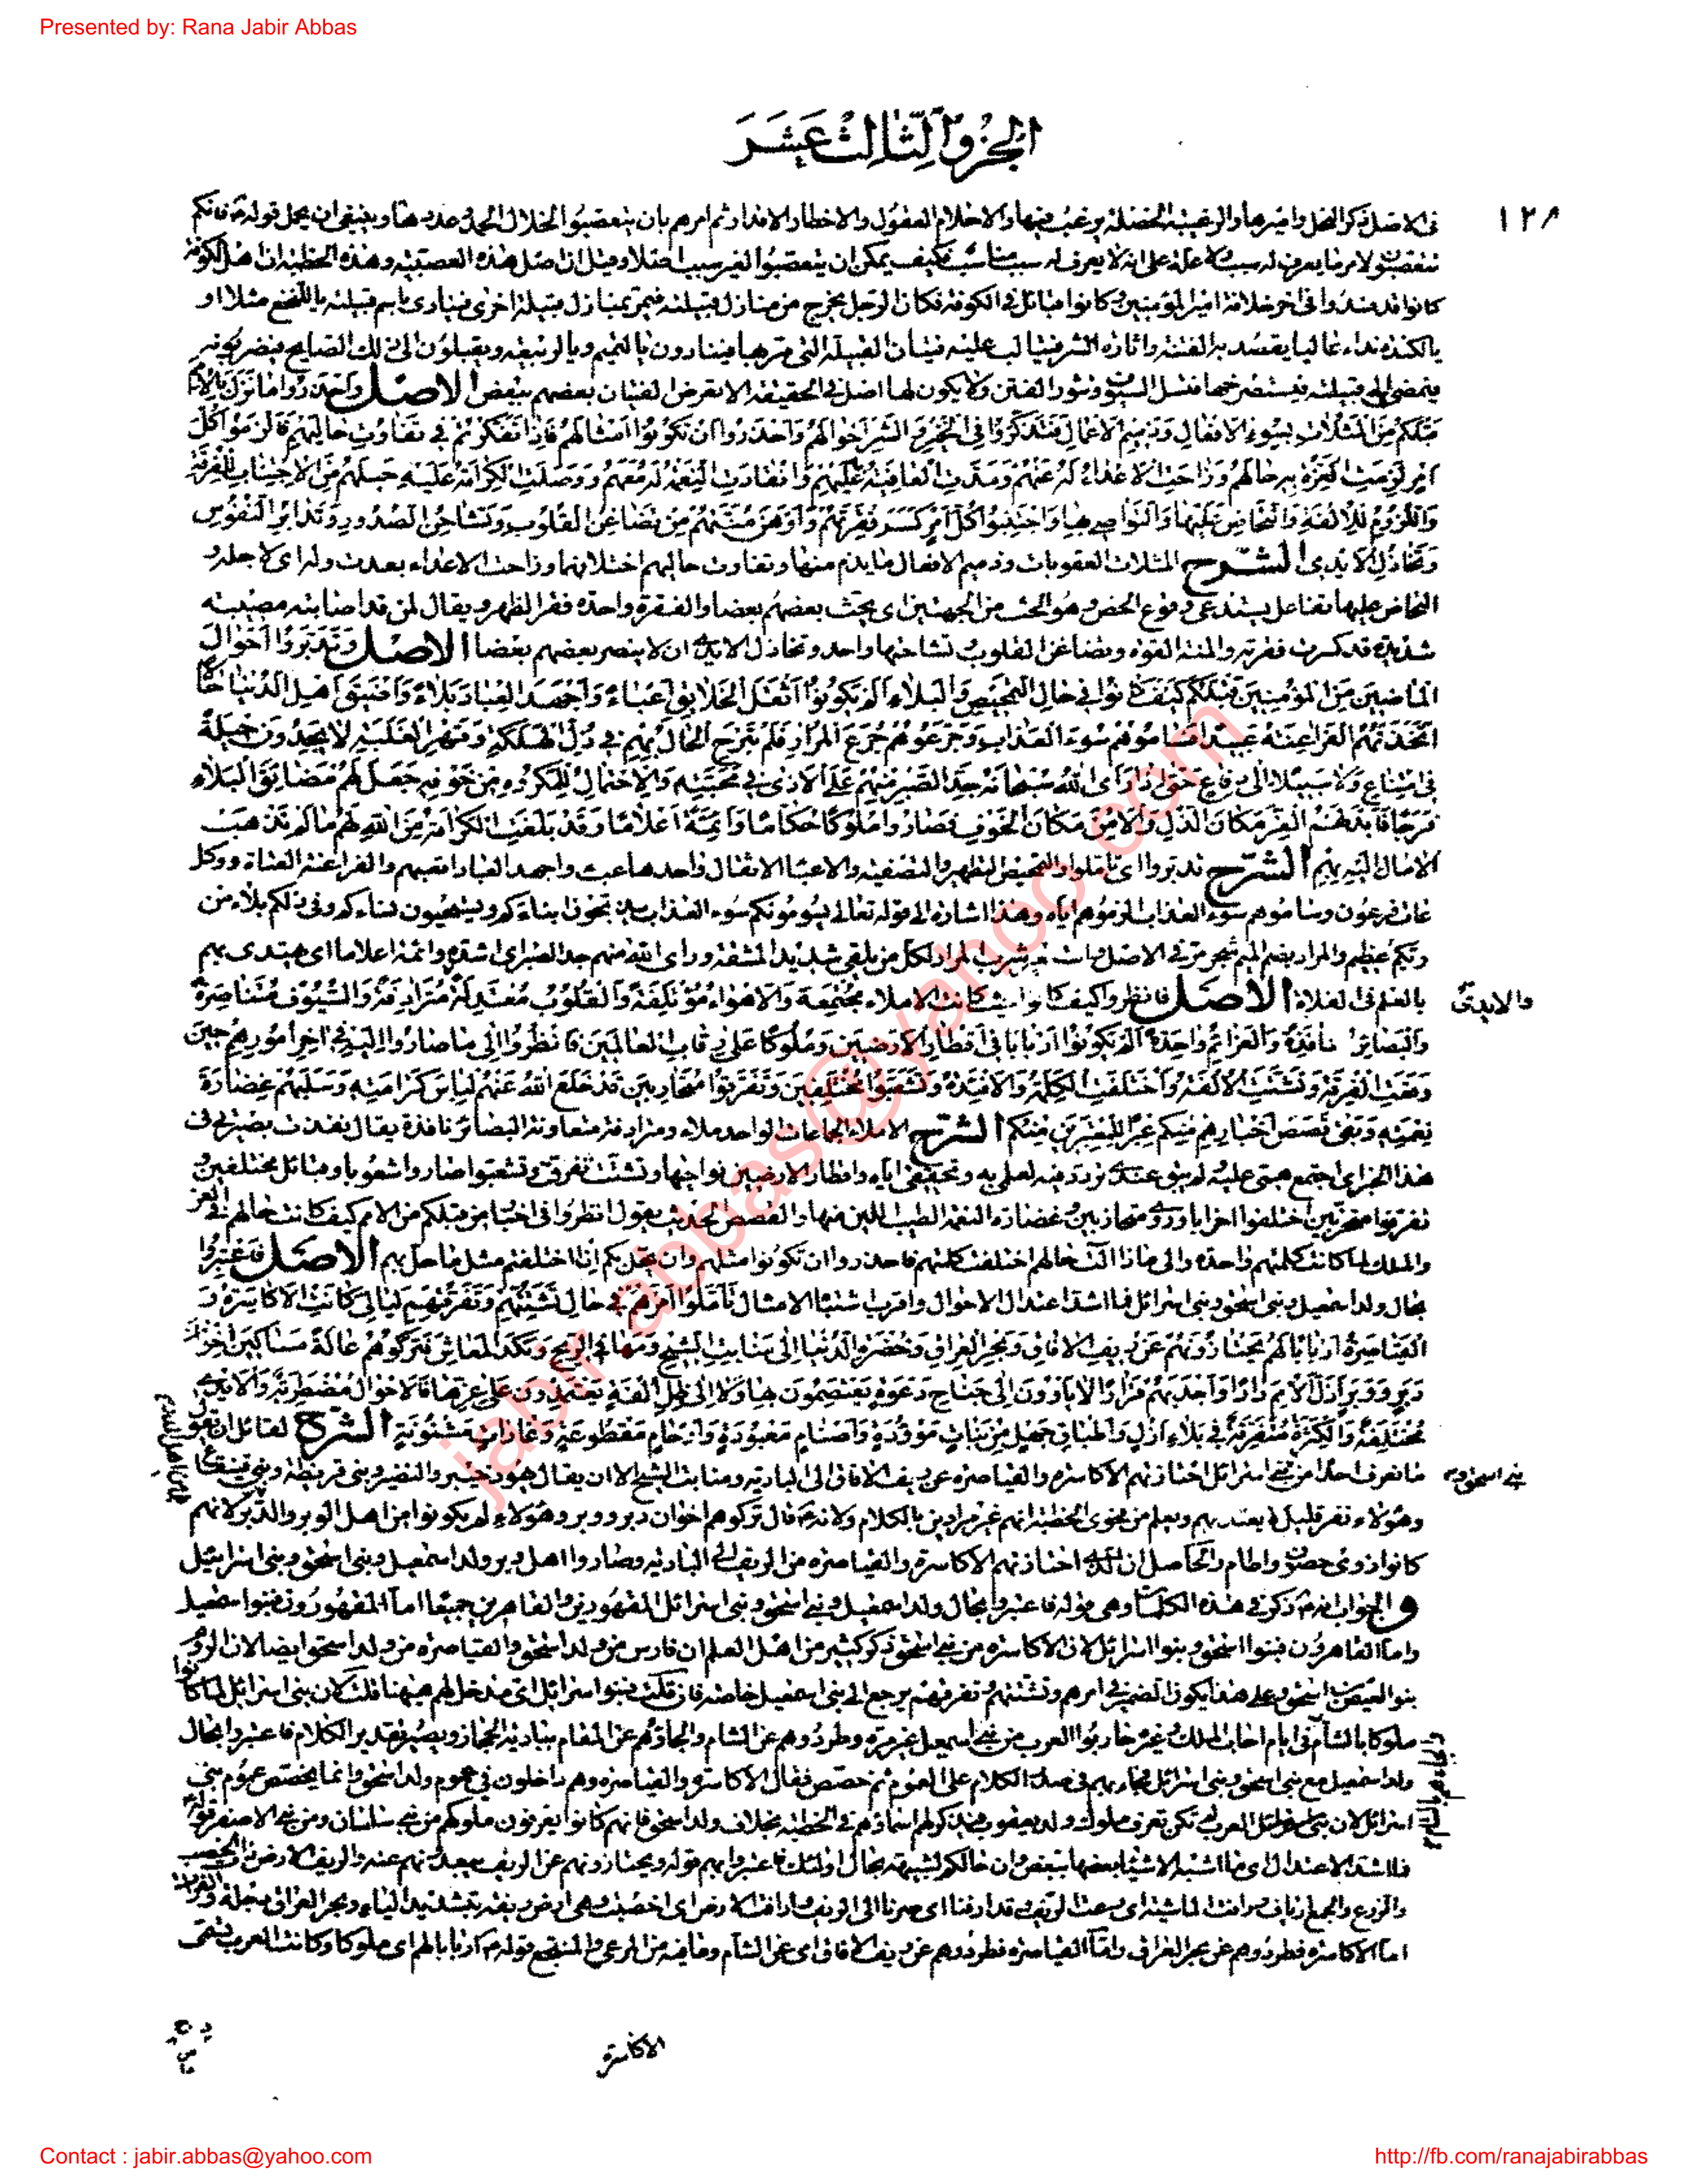 Presented by: Rana Jabir Abbas
الجزو الثالث عشر
١٢٨
في الاصل ذكر النحل واميرها والرغيبة الخصلة يرغب فيها والاحلام العقول والاخطار الاقدار ثم امرهم بان يتعصبوا لخلال الحمد وعددها وينبغي ان يحمل قوله ع فانكم
تتعصبون لامر ما يعرف له سبب ولا علة على انه لا يعرف له سبب مناسب فكيف يمكن ان يتعصبوا لغير سبب اصلا وقيل ان اصل هذه العصبية وهذه الخطبة ان اهل الكوفة
كانوا قد فسدوا في اخر خلافة امير المؤمنين وكانوا قبائل في الكوفة فكان الرجل يخرج من منازل قبيلته فيمر بمنازل قبيلة اخرى فينادي باسم قبيلته يا للنخع مثلا او
يا لكندة نداء عاليا يقصد به الفتنة واثارة الشر فيتألب عليه فتيان القبيلة التي مر بها فينادون يا لتميم ويا لربيعة ويقبلون الى ذلك الصايح فيضربونه
فيمضي الى قبيلته فيستصرخها فتسل السيوف وتثور الفتن ولا يكون لها اصل في الحقيقة الا تعرض الفتيان بعضهم ببعض الاصل واحذروا ما نزل بالامم
قبلكم من المثلات بسوء الافعال وذميم الاعمال فتذكروا في الخير والشر احوالهم واحذروا ان تكونوا امثالهم فاذا تفكرتم في تفاوت حاليهم فالزموا كل
امر لزمت العزة به حالهم وزاحت الاعداء له عنهم ومدت العافية عليهم وانقادت النعمة له معهم ووصلت الكرامة عليه حبلهم من الاجتناب للفرقة
واللزوم للالفة والتحاض عليها والتواصي بها واجتنبوا كل امر كسر فقرتهم واوهن منتهم من تضاغن القلوب وتشاحن الصدور وتدابر النفوس
وتخاذل الايدي الشرح المثلات العقوبات وذميم الافعال ما يذم منها وتفاوت حاليهم اختلافهما وزاحت الاعداء بعدت وله اي لاجله
التحاض عليها تفاعل يستدعي وقوع الحض وهو الحث من الجهتين اي يحث بعضهم بعضا والفقرة واحدة فقر الظهر ويقال لمن قد اصابته مصيبة
شديدة قد كسرت فقرته والمنة القوة وتضاغن القلوب وتشاحنها واحد وتخاذل الايدي ان لا ينصر بعضهم بعضا الاصل وتدبروا احوال
الماضين من المؤمنين قبلكم كيف كانوا في حال التمحيص والبلاء الم يكونوا اثقل الخلائق اعباء واجهد العباد بلاء واضيق اهل الدنيا حالا
اتخذتهم الفراعنة عبيدا فساموهم سوء العذاب وجرعوهم جرع المرار فلم تبرح الحال بهم في ذل الهلكة وقهر الغلبة لا يجدون حيلة
في امتناع ولا سبيلا الى دفاع حتى اذا رأى الله سبحانه جد الصبر منهم على الاذى في محبته والاحتمال للمكروه من خوفه جعل لهم من مضائق البلاء
فرجا فابدلهم العز مكان الذل والامن مكان الخوف فصاروا ملوكا حكاما وائمة اعلاما وقد بلغت الكرامة من الله لهم ما لم تذهب
الآمال اليه بهم الشرح تدبروا اي تاملوا والتمحيص التطهير والتصفية والاعباء الاثقال واحدها عبء واجهد العباد اتعبهم والفراعنة العتاة وكل
عات فرعون وساموهم سوء العذاب الزموهم اياه وهذا اشارة الى قوله تعالى يسومونكم سوء العذاب يذبحون ابناءكم ويستحيون نساءكم وفي ذلكم بلاء من
ربكم عظيم والمرار بضم الميم شجر مر في الاصل شرب المرار لكل من يلقي شديد المشقة وراى الله منهم جد الصبر اي اشده وائمة اعلاما اي يهتدى بهم
كالعلم في الفلاة الاصل فانظروا كيف كانوا حيث كانت الاملاء مجتمعة والاهواء مؤتلفة والقلوب معتدلة مترادفة والسيوف متناصرة
والايدي
والبصائر نافذة والعزائم واحدة الم يكونوا اربابا في اقطار الارضين وملوكا على رقاب العالمين فانظروا الى ما صاروا اليه في اخر امورهم حين
وقعت الفرقة وتشتت الالفة واختلفت الكلمة والافئدة وتشعبوا مختلفين وتفرقوا متحاربين قد خلع الله عنهم لباس كرامته وسلبهم غضارة
نعمته وبقي قصص اخبارهم فيكم عبرا للمعتبرين منكم الشرح الاملاء الجماعات الواحد ملاء ومترادفة متعاونة البصائر نافذة يقال نفذت بصيرتي في
هذا الخبر اي اجتمع همي عليه ولم يبق عندي تردد فيه لعلمي به وتحقيقي اياه واقطار الارضين نواحيها وتشتت تفرق وتشعبوا صاروا شعوبا وقبائل مختلفين و
تفرقوا متحزبين اختلفوا احزابا وروي متحازبين وغضارة النعمة الطيب اللين منها والقصص الحديث يقول انظروا في اخبار من قبلكم من الامم كيف كانت حالهم في العز
والملك لما كانت كلمتهم واحدة والى ماذا آلت حالهم حين اختلفت كلمتهم فاحذروا ان تكونوا مثلهم وان يحل بكم ان اختلفتم مثل ما حل بهم الاصل فاعتبروا
بحال ولد اسمعيل وبني اسحق وبني اسرائل فما اشد اعتدال الاحوال واقرب اشتباه الامثال تأملوا امرهم في حال تشتتهم وتفرقهم ليالي كانت الاكاسرة و
القياصرة اربابا لهم يحتازونهم عن ريف الافاق وبحر العراق وخضرة الدنيا الى منابت الشيح ومهافي الريح ونكد المعاش فتركوهم عالة مساكين اخوان
دبر ووبر اذل الامم دارا واجدبهم قرارا لا ياوون الى جناح دعوة يعتصمون بها ولا الى ظل الفة يعتمدون على عزها فالاحوال مضطربة والايدي
مختلفة والكثرة متفرقة في بلاء ازل واطباق جهل من بنات موؤدة واصنام معبودة وارحام مقطوعة وغارات مشنونة الشرح لقائل ان يقول
ما نعرف احدا من بني اسرائل احتازتهم الاكاسرة والقياصرة عن ريف الافاق الى البادية ومنابت الشيح الا ان يقال يهود خيبر والنضير وبني قريظة وبني قينقاع
بني اسحق و
وهؤلاء نفر قليل لا يعتد بهم ويعلم من فحوى الخطبة انهم غير مرادين بالكلام ولانه ع قال تركوهم اخوان دبر ووبر وهؤلاء لم يكونوا من اهل الوبر والدبر لانهم
كانوا ذوي حصون واطام والحاصل ان الذين احتازتهم الاكاسرة والقياصرة من الريف الى البادية وصاروا اهل وبر ولد اسمعيل لا بني اسحق وبني اسرائيل
والجواب انه ع ذكر في هذه الكلمات وهي قوله فاعتبروا بحال ولد اسمعيل وبني اسحق وبني اسرائل المقهورين والقاهرين جميعا اما المقهورون فبنوا اسمعيل
واما القاهرون فبنوا اسحق وبنوا اسرائل لان الاكاسرة من بني اسحق ذكر كثير من اهل العلم ان فارس من ولد اسحق والقياصرة من ولد اسحق ايضا لان الروم
بنو العيص بن اسحق وعلى هذا يكون الضمير في امرهم وتشتتهم وتفرقهم يرجع الى بني اسمعيل خاصة فان قلت فبنوا اسرائل اي مدخل لهم هيهنا قلت لان بني اسرائل لما كانوا
ملوكا بالشام في ايام اخاب الملك وغيره حاربوا العرب من بني اسمعيل غير مرة وطردوهم عن الشام والجاؤهم على المقام ببادية الحجاز ويصير تقدير الكلام فاعتبروا بحال
ولد اسمعيل مع بني اسحق وبني اسرائل فجاء بهم في صدر الكلام على العموم ثم خصص فقال الاكاسرة والقياصرة وهم داخلون في عموم ولد اسحق وانما يخصص عموم بني
اسرائل لان العرب لم تكن تعرف ملوك ولد يعقوب فيذكر لهم اسماؤهم في الخطبة بخلاف ولد اسحق فانهم كانوا يعرفون ملوكهم من بني ساسان ومن بني الاصفر قوله ع
فما اشد الاعتدال اي ما اشبه الاشياء بعضها ببعض وان حالكم لشبيهة بحال اولئك فاعتبروا بهم قوله يحتازونهم عن الريف يبعدونهم عنه والريف الارض ذات الخصب
والزرع والجمع ارياف ورافت الماشية اي رعت الريف وقد ارفنا اي صرنا الى الريف وارافت الارض اي اخصبت وهي ارض ريفة بتشديد الياء وبحر العراق دجلة والفرات
اما الاكاسرة فطردوهم عن بحر العراق واما القياصرة فطردوهم عن ريف الافاق اي عن الشام وما فيه من المرعى والمنتجع قوله ع اربابا لهم اي ملوكا وكانت العرب تسمي
الاكاسرة
jabir.abbas@yahoo.com
Contact : jabir.abbas@yahoo.com
http://fb.com/ranajabirabbas